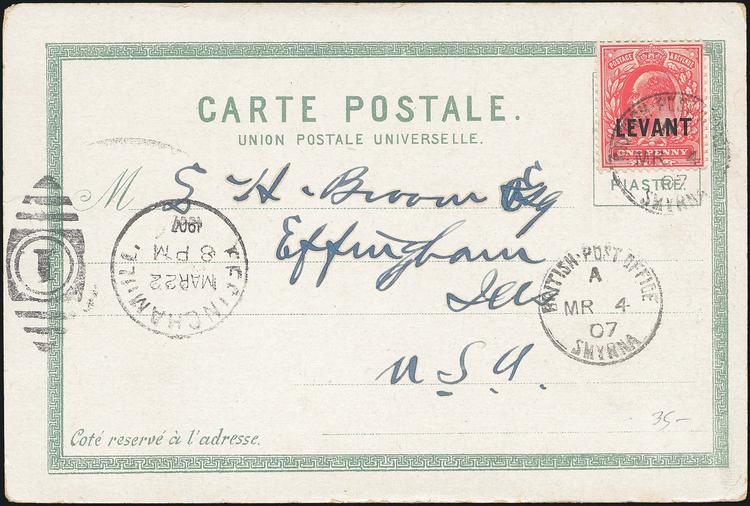 CARTE POSTALE.
UNION POSTALE UNIVERSELLE.
POSTAGE & REVENUE
LEVANT
ONE PENNY
PIASTRE.
MR 4
07
SMYRNA
M S H Broom Esq
Effingham
Ills
U.S.A.
BRITISH·POST OFFICE
A
MR 4
07
SMYRNA
EFFINGHAM ILL.
MAR 22
8 PM
1907
1
Coté reservé à l'adresse.
35-